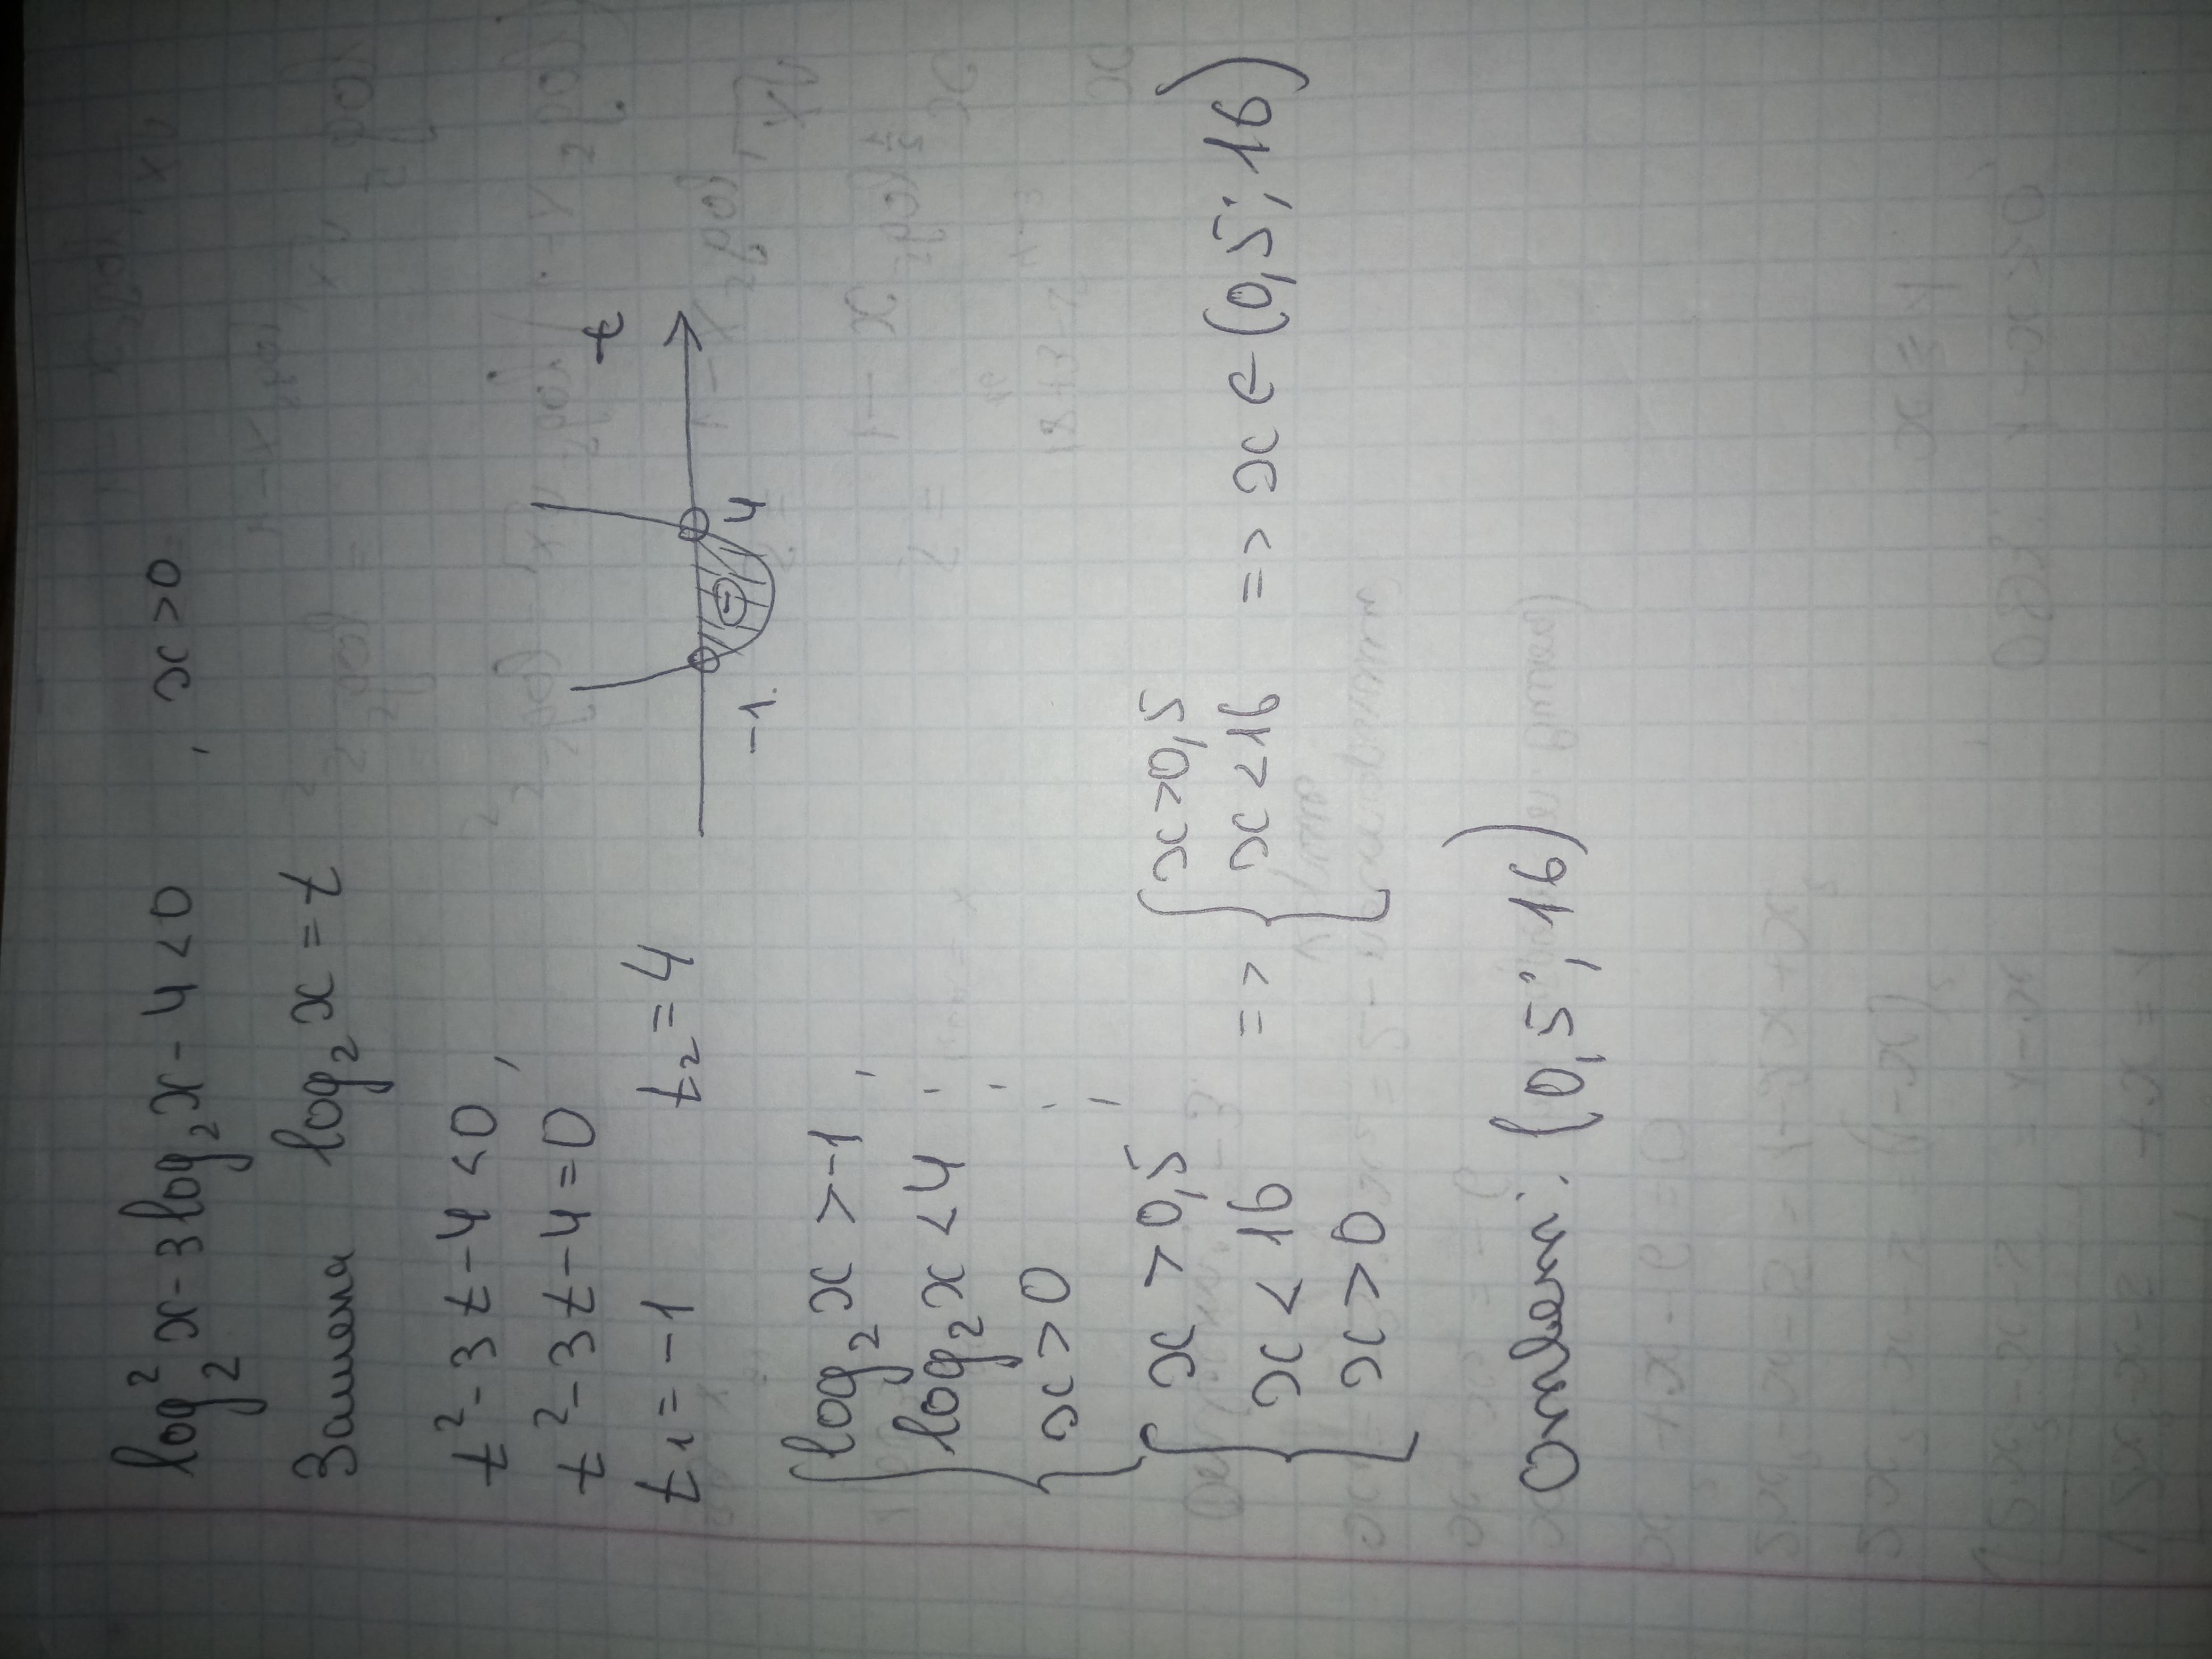 log₂²x - 3log₂x - 4 < 0 , x > 0
Замена log₂x = t
t² - 3t - 4 < 0,
t² - 3t - 4 = 0
t₁ = -1 t₂ = 4
-1 4 t
{ log₂x > -1,
log₂x < 4
x > 0
{ x > 0,5
x < 16
x > 0
=> { x > 0,5
x < 16
=> x ∈ (0,5; 16)
Ответ: (0,5; 16)